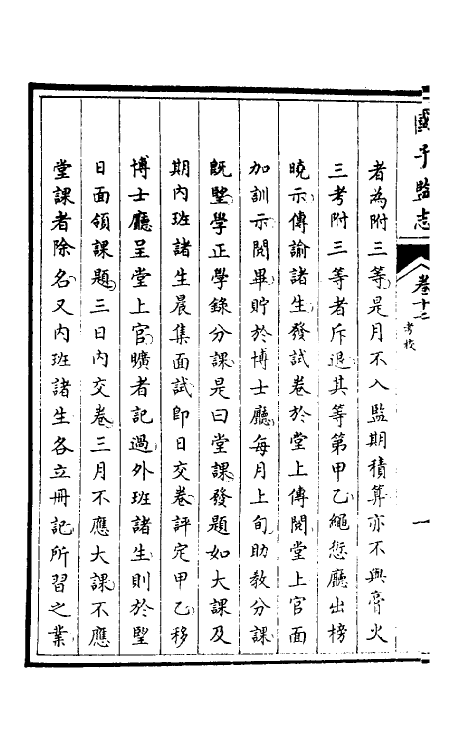 國子監志
卷十二
考校
一
者為附三等是月不入監期積算亦不與膏火
三考附三等者斥退其等第甲乙繩愆廳出榜
曉示傳諭諸生發試卷於堂上傳閱堂上官面
加訓示閱畢貯於博士廳每月上旬助教分課
既朢學正學錄分課是曰堂課發題如大課及
期內班諸生晨集面試即日交卷評定甲乙移
博士廳呈堂上官曠者記過外班諸生則於朢
日面領課題三日內交卷三月不應大課不應
堂課者除名又內班諸生各立冊記所習之業